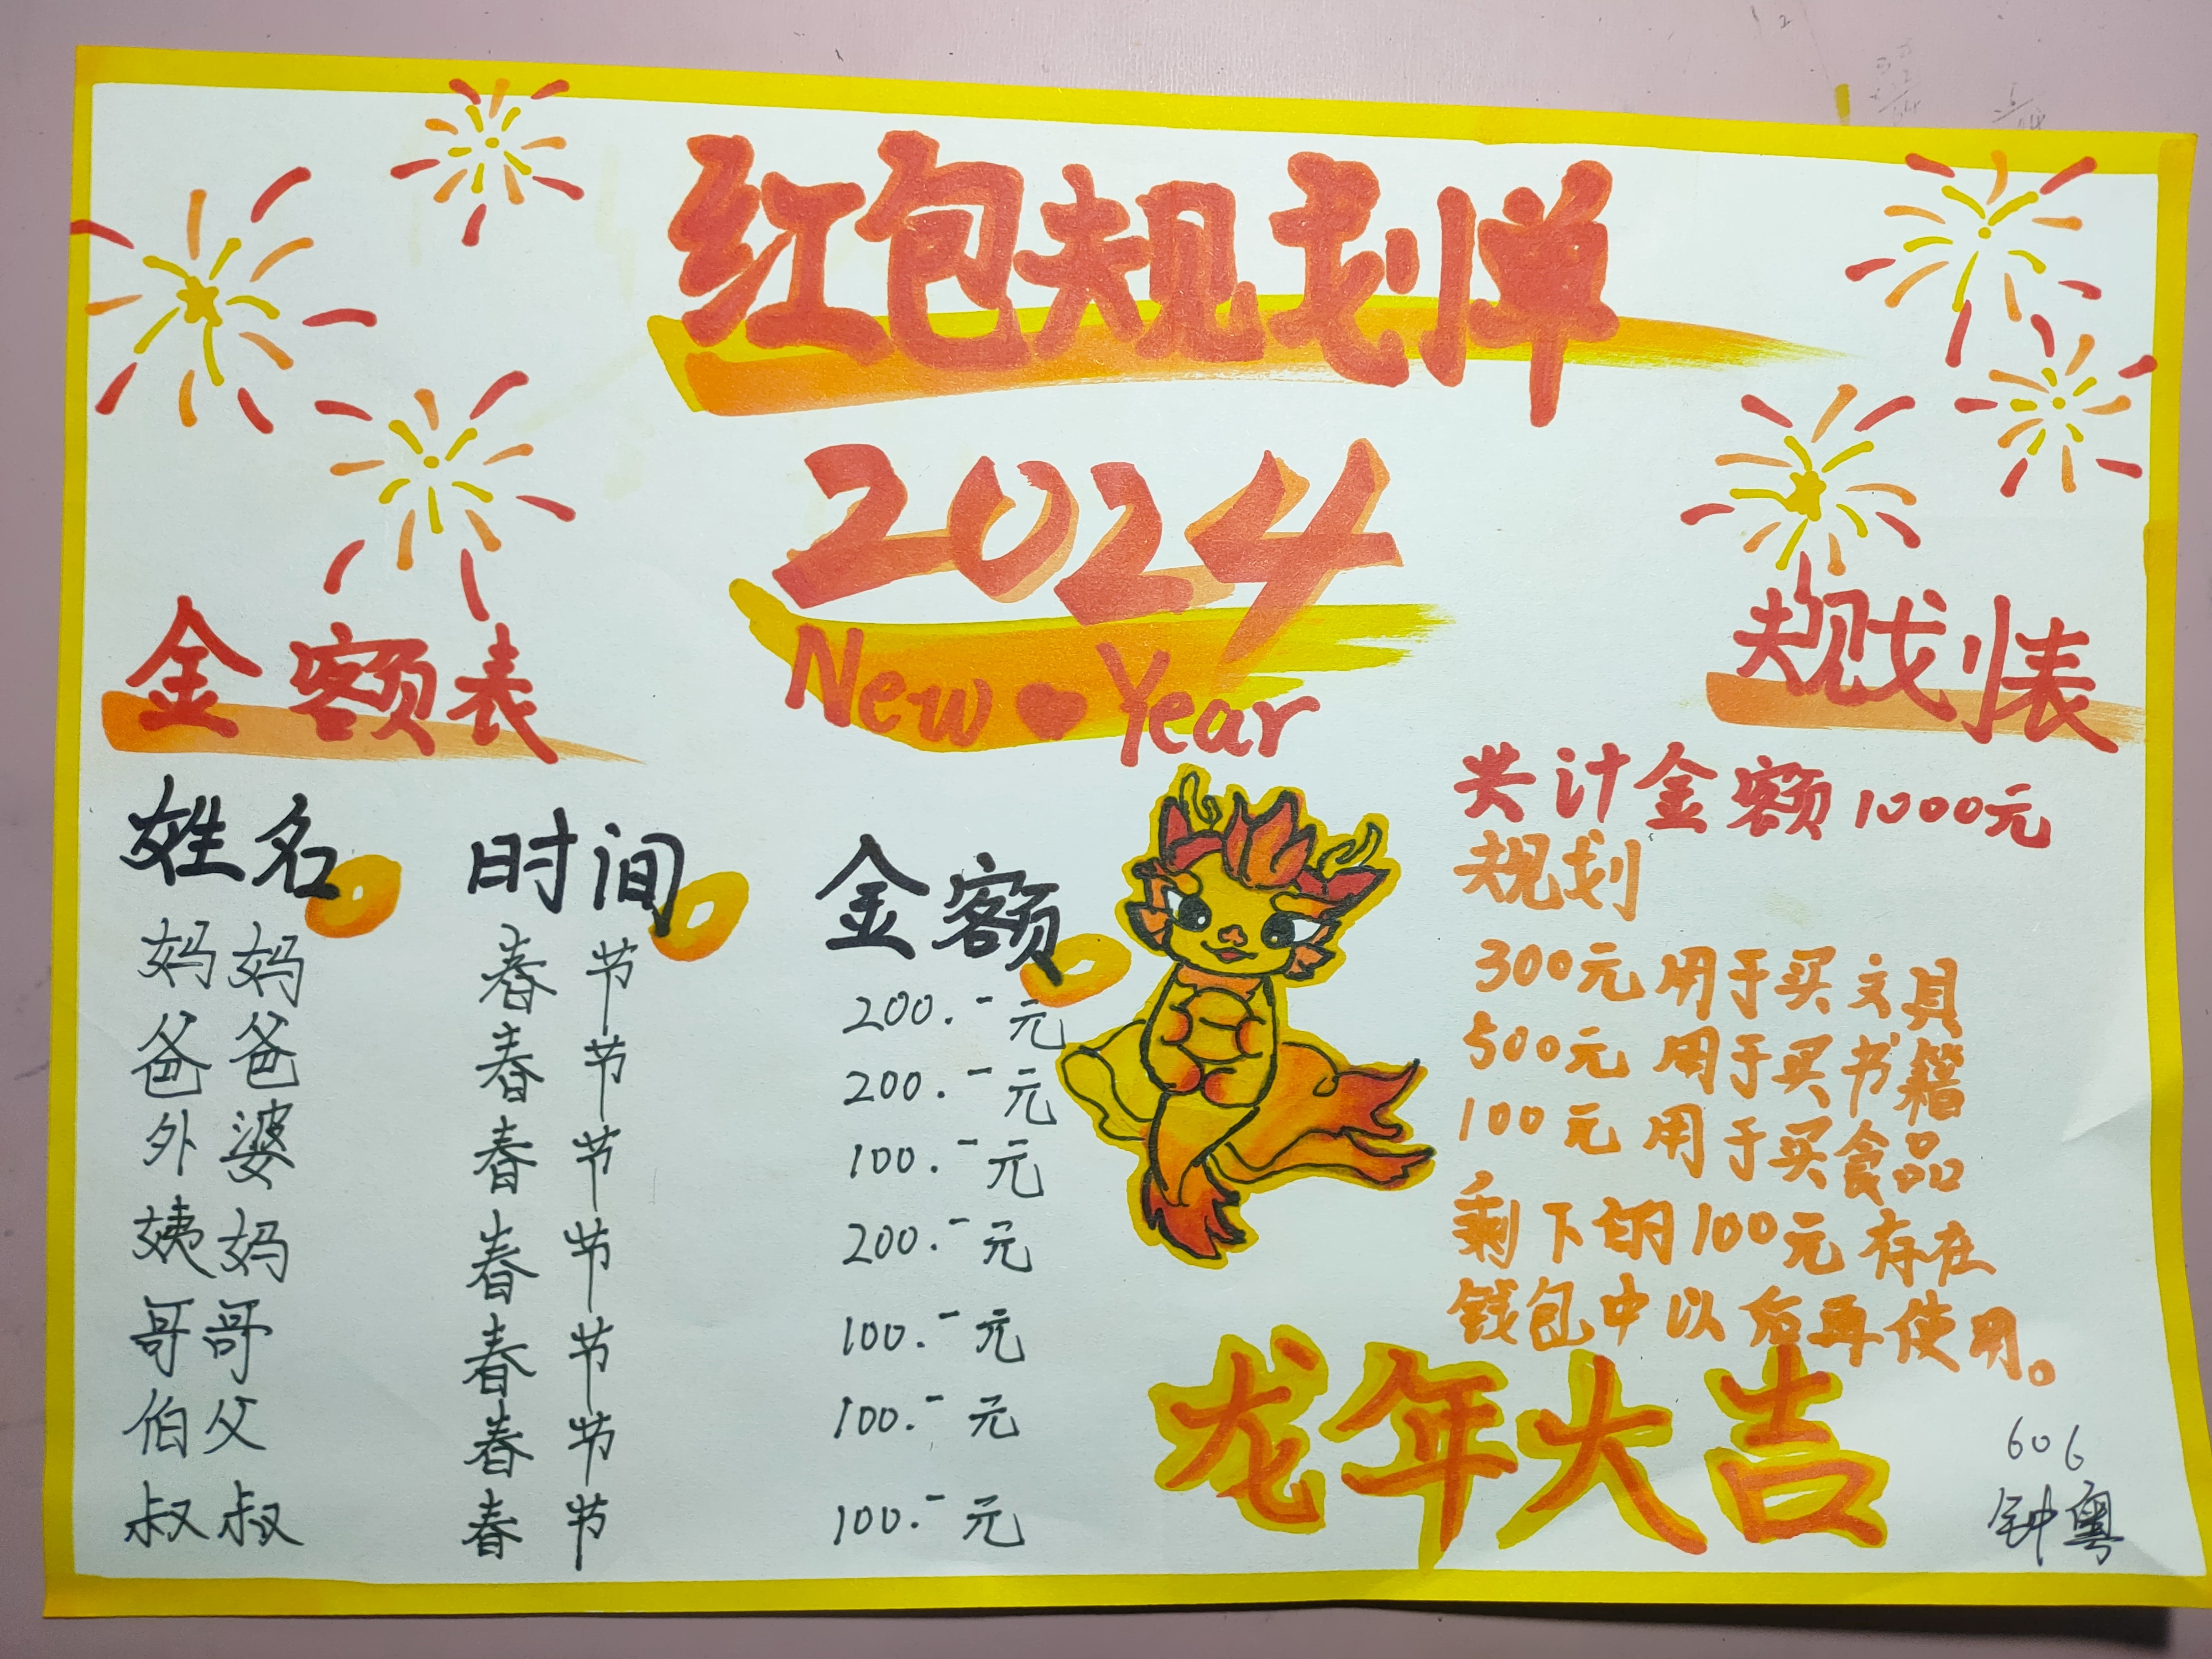 红包规划单
2024
New Year
金额表
姓名 时间 金额
妈妈 春节 200.-元
爸爸 春节 200.-元
外婆 春节 100.-元
姨妈 春节 200.-元
哥哥 春节 100.-元
伯父 春节 100.-元
叔叔 春节 100.-元
规划表
共计金额1000元
规划
300元用于买文具
500元用于买书籍
100元用于买食品
剩下的100元存在
钱包中以后再使用。
龙年大吉
606
钟粤